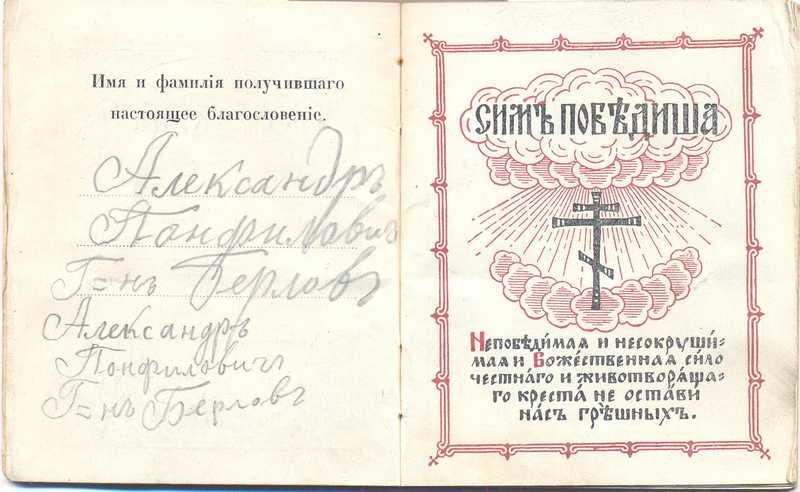 Имя и фамилія получившаго
настоящее благословеніе.
Александръ
Понфиловичъ
Г=нъ Берловъ
Александръ
Понфиловичъ
Г=нъ Берловъ
СИМЪ ПОБѢДИША
Непобѣди́мая и несокруши́-
мая и Боже́ственная си́ло
честна́го и животворѧ́ща-
го креста̀ не оста́ви
на́съ грѣ́шныхъ.